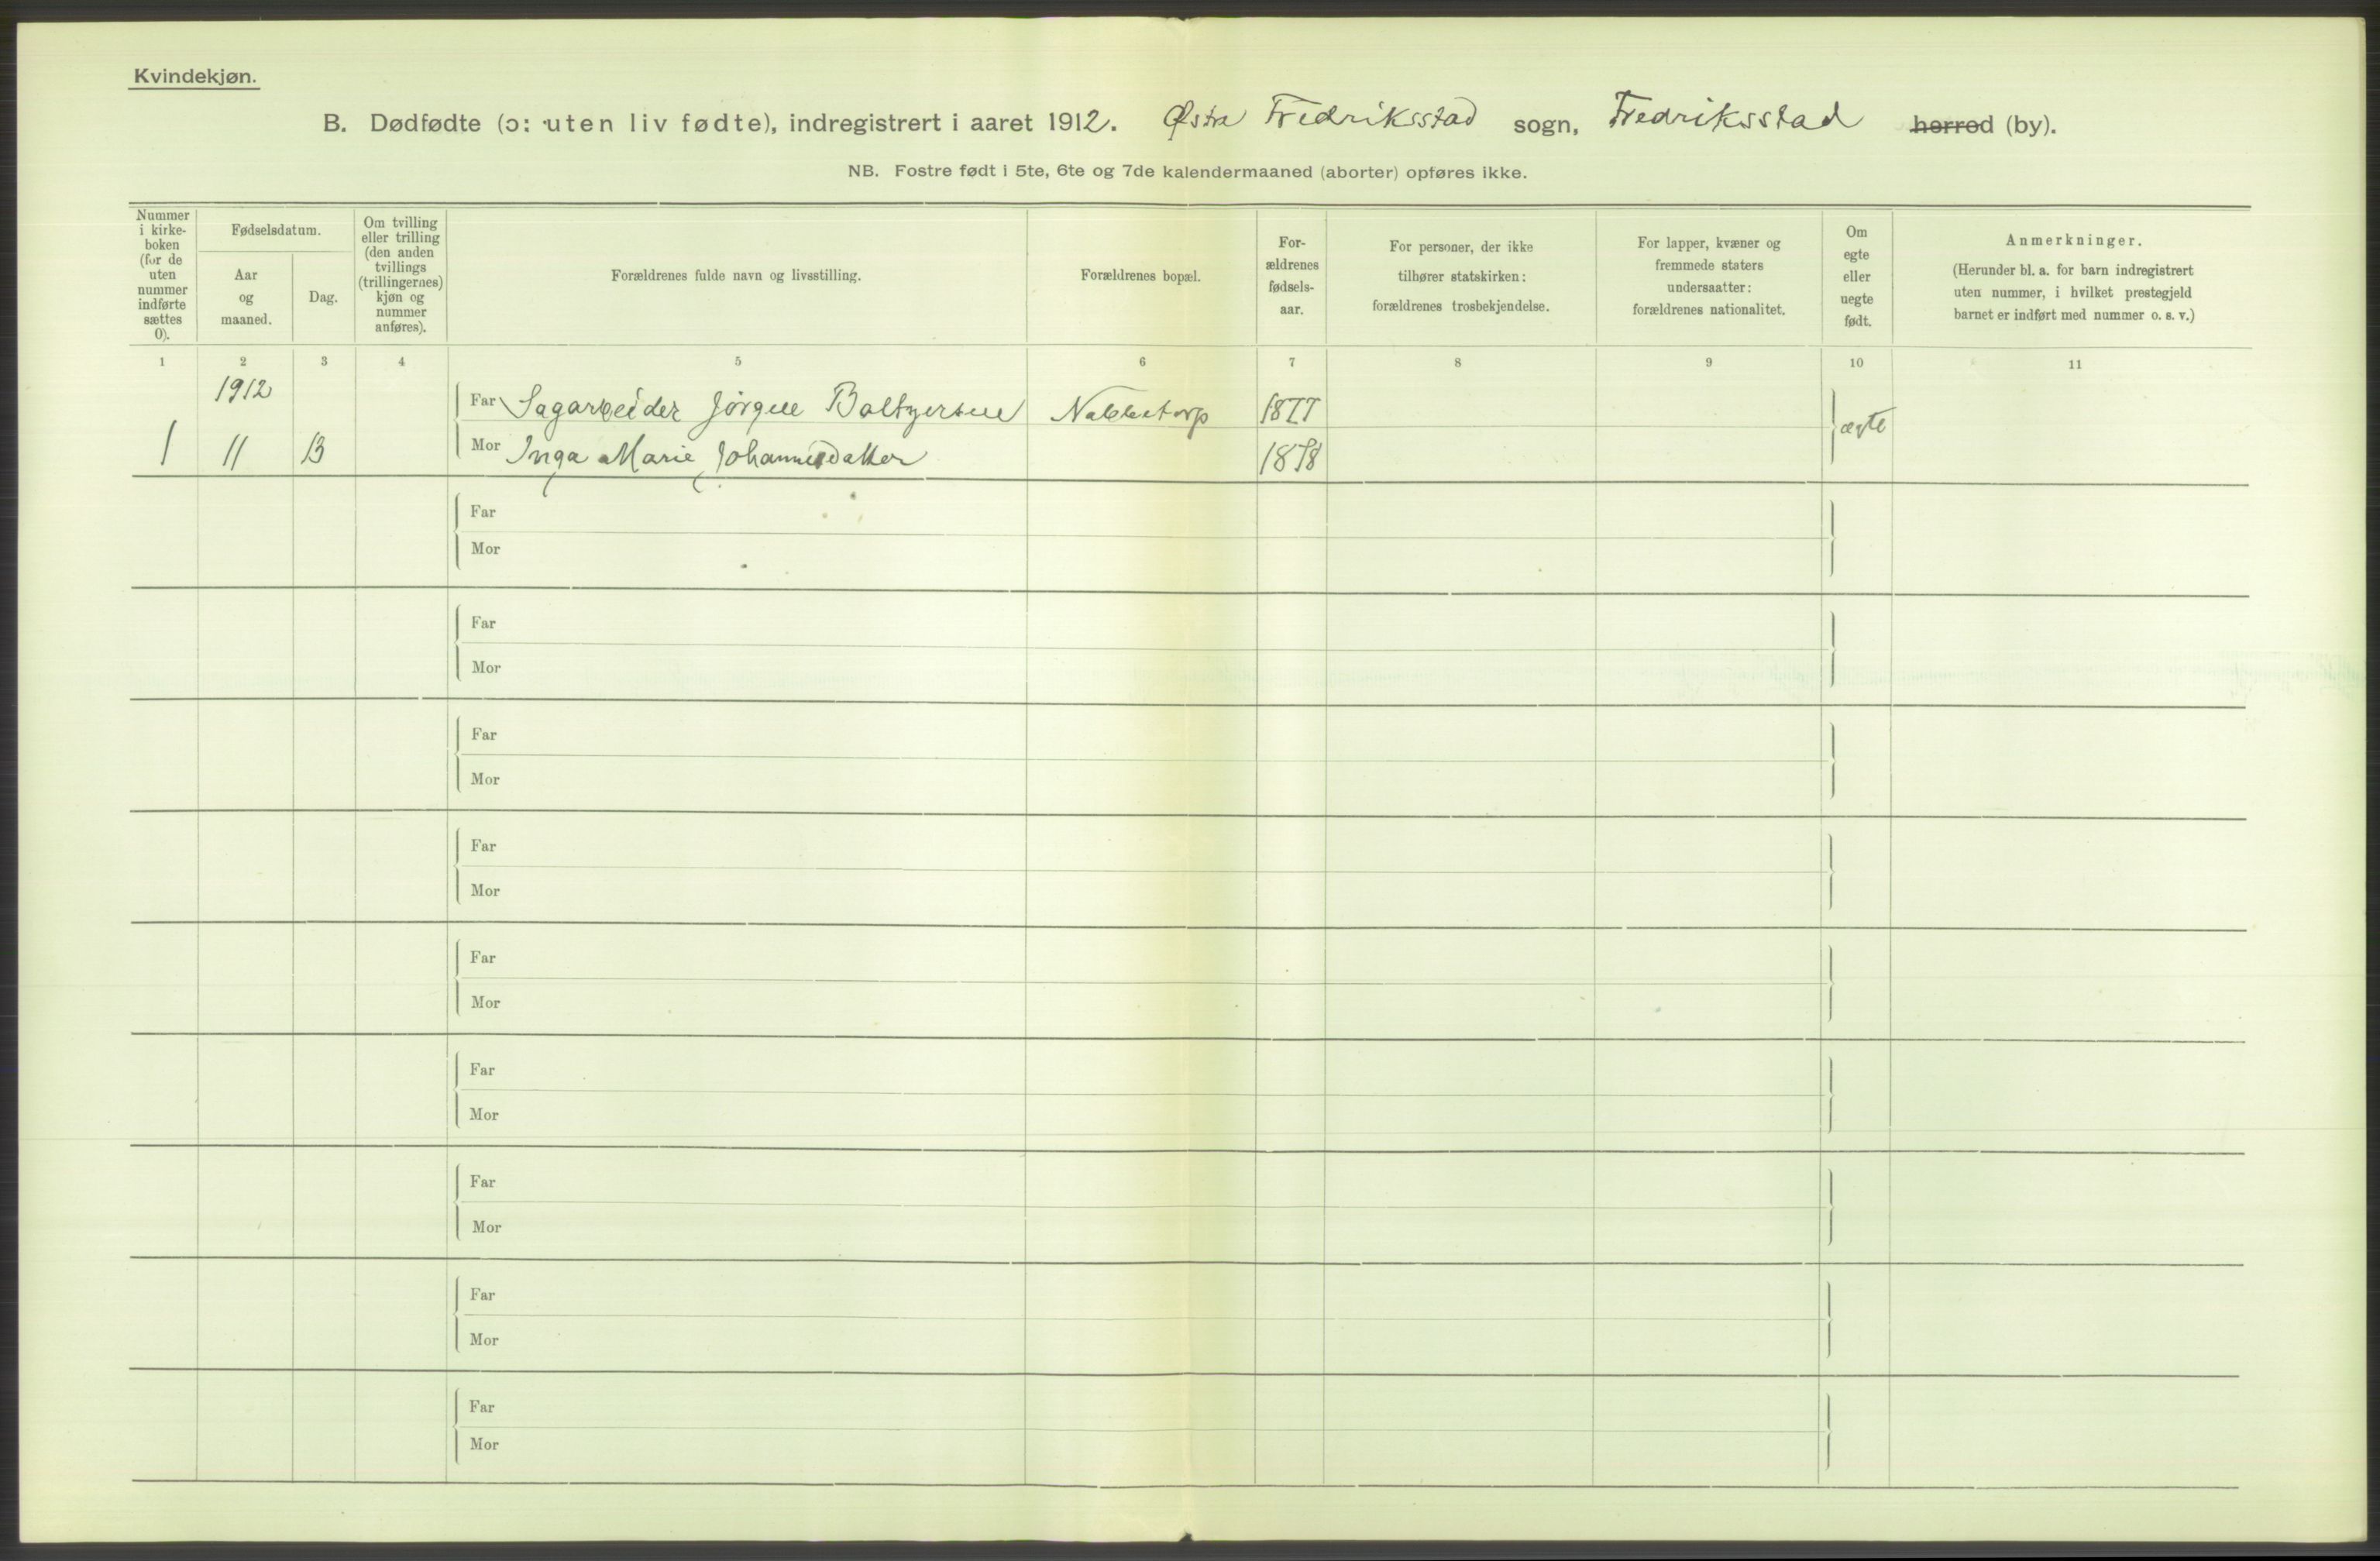 Kvindekjøn.
B. Dødfødte (ɔ: uten liv fødte), indregistrert i aaret 1912. Østre Fredriksstad sogn, Fredriksstad herred (by).
NB. Fostre født i 5te, 6te og 7de kalendermaaned (aborter) opføres ikke.
Nummer
i kirke-
boken
(for de
uten
nummer
indførte
sættes
0).
Fødselsdatum.
Aar
og
maaned.
Dag.
Om tvilling
eller trilling
(den anden
tvillings
(trillingernes)
kjøn og
nummer
anføres).
Forældrenes fulde navn og livsstilling.
Forældrenes bopæl.
For-
ældrenes
fødsels-
aar.
For personer, der ikke
tilhører statskirken:
forældrenes trosbekjendelse.
For lapper, kvæner og
fremmede staters
undersaatter:
forældrenes nationalitet.
Om
egte
eller
uegte
født.
Anmerkninger.
(Herunder bl. a. for barn indregistrert
uten nummer, i hvilket prestegjeld
barnet er indført med nummer o. s. v.)
1 2 3 4 5 6 7 8 9 10 11
1912
Far Sagarbeider Jørgen Baltzersen Nabbetorp 1877
ægte
1 11 13 Mor Inga Marie Johannesdatter 1878
Far
Mor
Far
Mor
Far
Mor
Far
Mor
Far
Mor
Far
Mor
Far
Mor
Far
Mor
Far
Mor